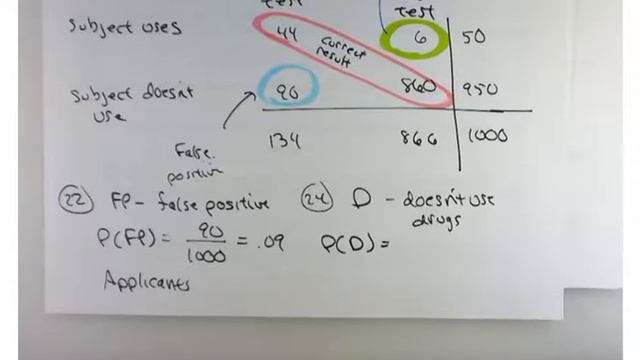 test
Subject uses 44 6 50
correct
result
Subject doesn't 90 860 950
use
134 866 1000
False
positive
22 FP - false positive 24 D - doesn't use
drugs
P(FP) = 90/1000 = .09 P(D) =
Applicants